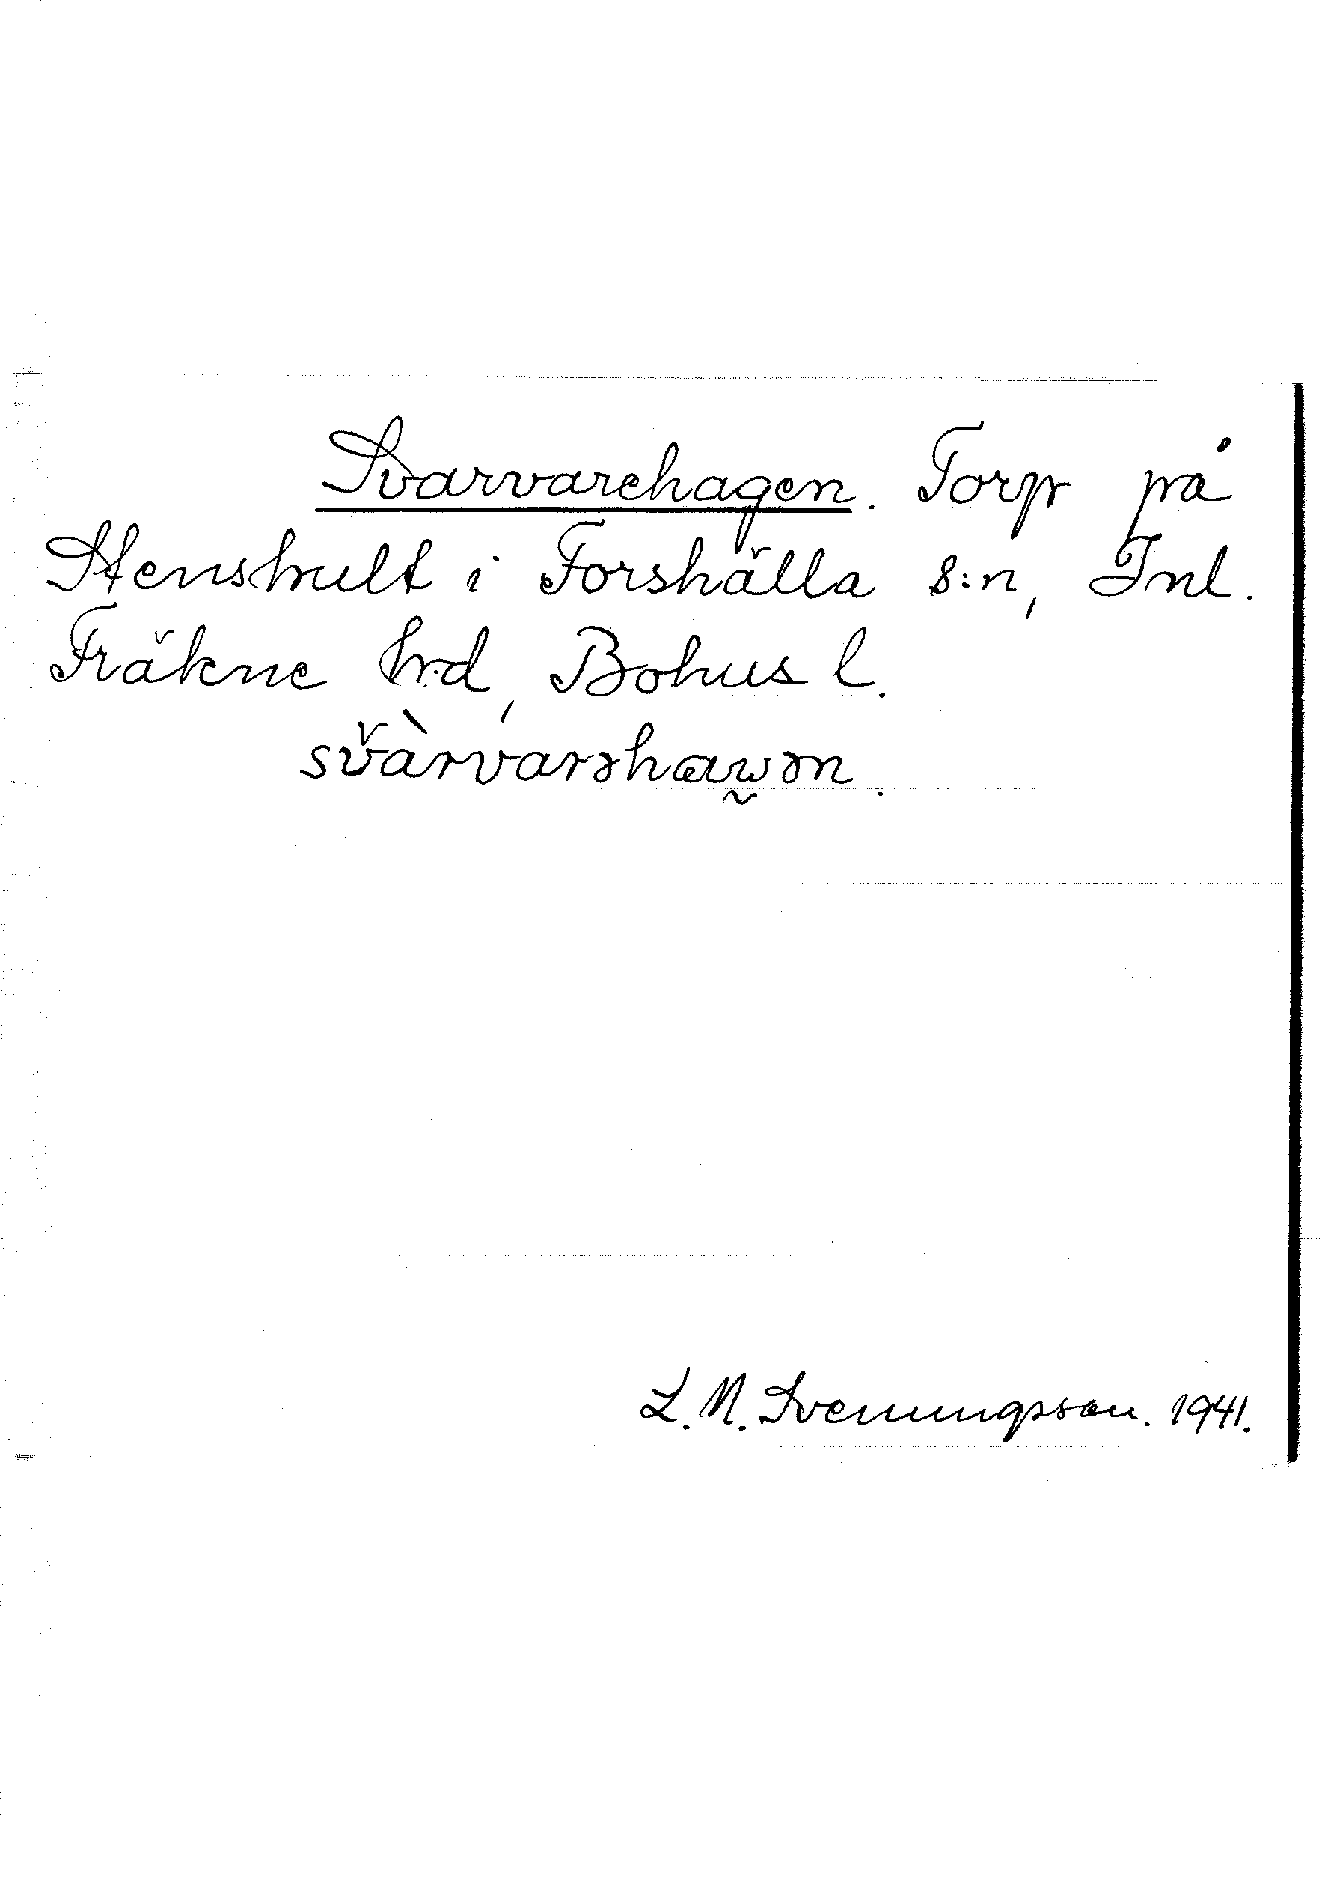 Svarvarehagen. Torp på
Stenshult i Forshälla s:n, Inl.
Fräkne hrd, Bohus l.
svàrvarəhaw̰ən.
L. N. Svenungsson. 1941.